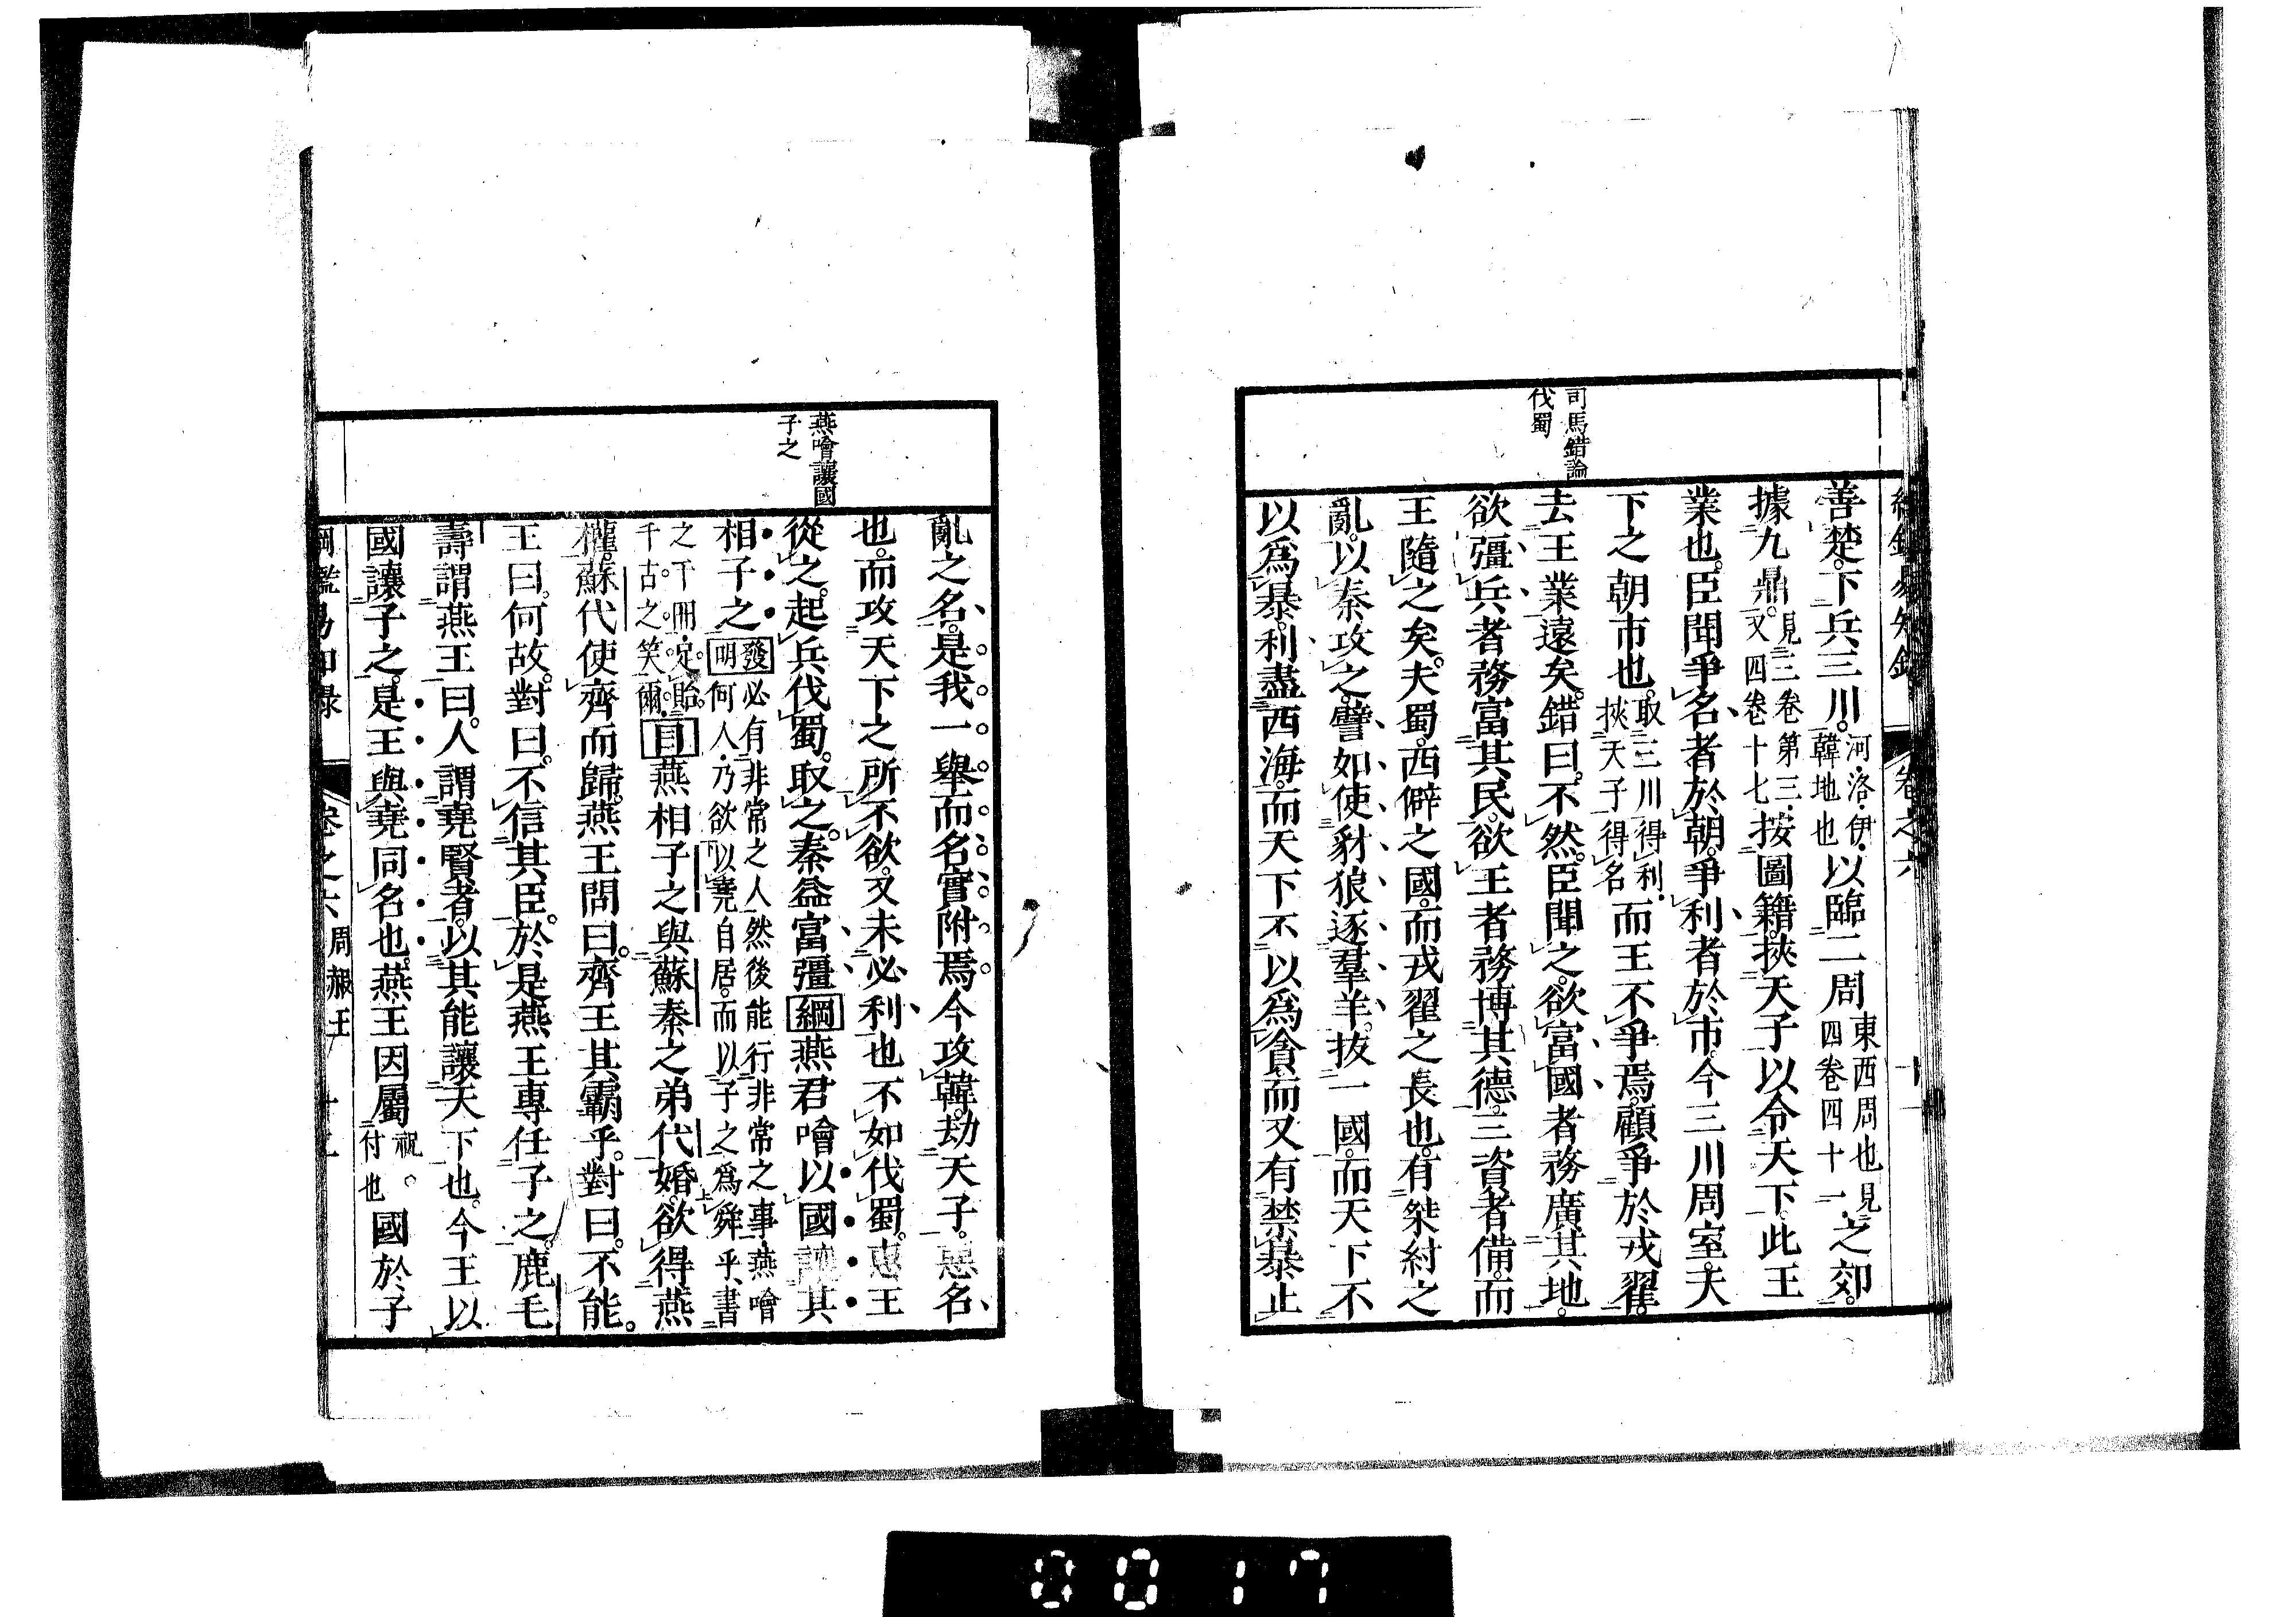 綱鑑易知錄 卷之六 十一
司馬錯論
伐蜀
善楚。下兵三川。河・洛・伊・韓地也以臨二周東西周也見四卷四十一・之郊。
據九鼎。見三卷第三・又四卷十七・按圖籍。挾天子以令天下。此王
業也。臣聞爭名者於朝。爭利者於市。今三川周室。天
下之朝市也。取三川得利・挾天子得名而王不爭焉。顧爭於戎翟。
去王業遠矣。錯曰。不然。臣聞之。欲富國者務廣其地。
欲彊兵者務富其民。欲王者務博其德。三資者備。而
王隨之矣。夫蜀。西僻之國。而戎翟之長也。有桀紂之
亂。以秦攻之。譬如使豺狼逐羣羊。拔一國。而天下不
以爲暴。利盡西海。而天下不以爲貪。而又有禁暴止
燕噲讓國
子之
亂之名。是我一舉而名實附焉。今攻韓。劫天子。惡名
也。而攻天下之所不欲。又未必利也不如伐蜀。惠王
從之。起兵伐蜀。取之。秦益富彊綱燕君噲以國讓其
相子之發明必有非常之人然後能行非常之事・燕噲何人・乃欲以堯自居。而以子之爲舜乎、書
之干冊・定貽。千古。之笑爾。目燕相子之與蘇秦之弟代婚。欲得燕
權。蘇代使齊而歸。燕王問曰。齊王其霸乎。對曰。不能。
王曰。何故。對曰。不信其臣。於是燕王專任子之。鹿毛
壽謂燕王曰。人謂堯賢者。以其能讓天下也。今王以
國讓子之。是王與堯同名也。燕王因屬祝。付也國於子
綱鑑易知錄 卷之六 周赧王 十二
0017